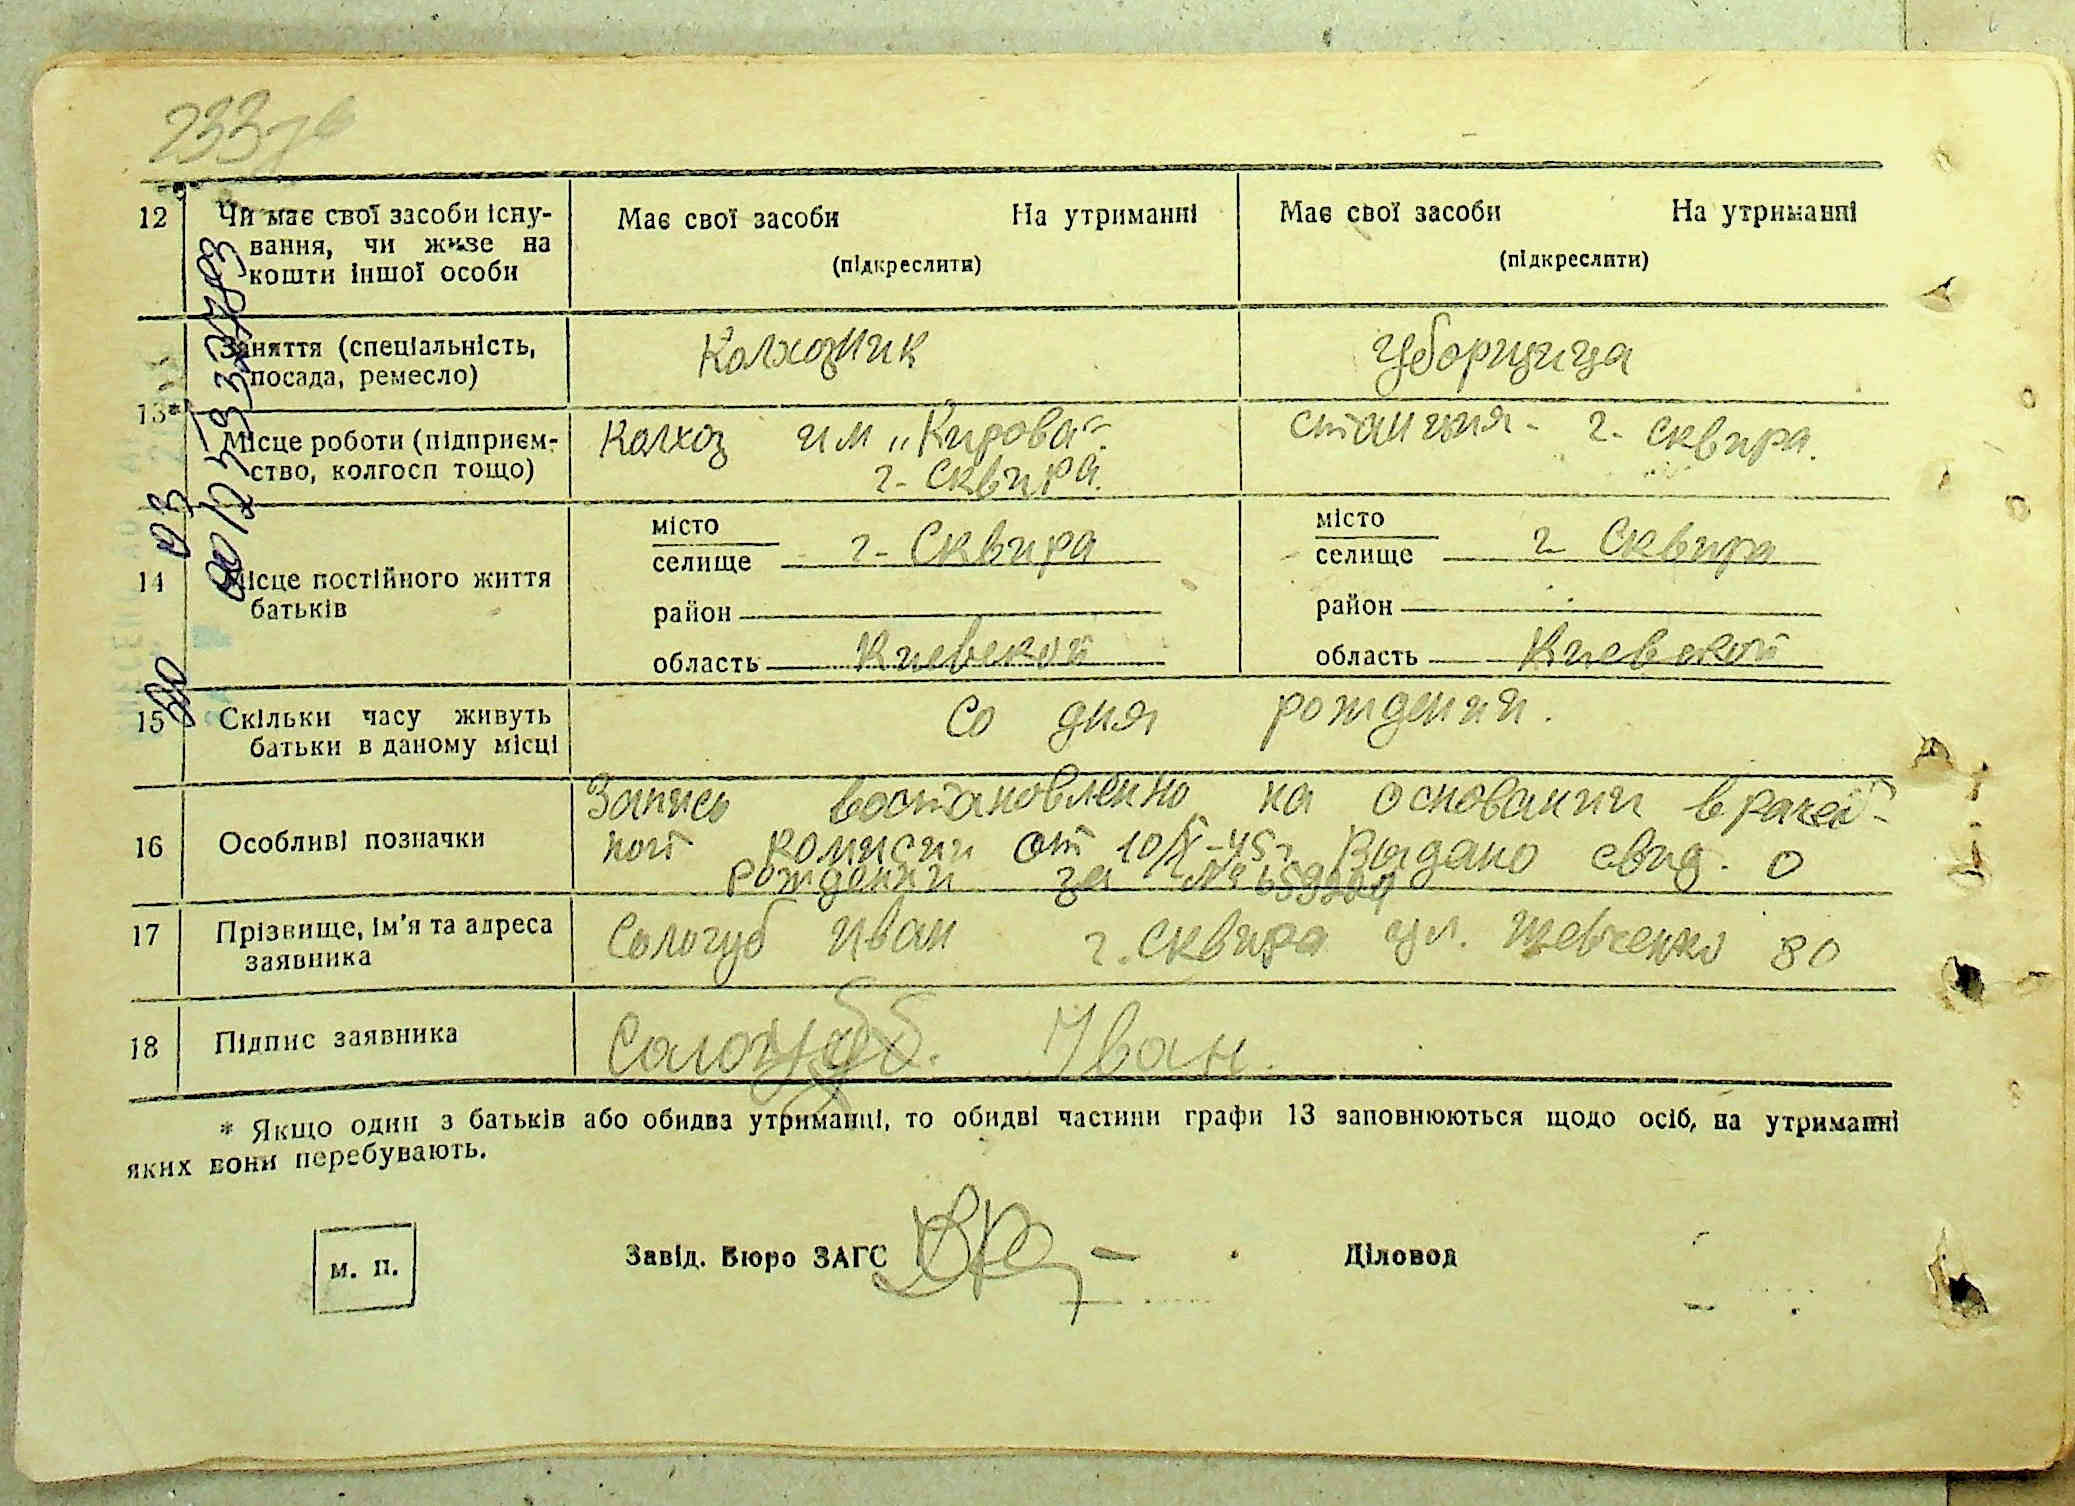 12 Чи має свої засоби існу- Має свої засоби На утриманні Має свої засоби На утриманні
вання, чи живе на
кошти іншої особи (підкреслити) (підкреслити)
Заняття (спеціальність, Колхозник Уборщица
посада, ремесло)
13*
Місце роботи (підприєм- Колхоз им „Кирова“. станция - г. Сквира.
ство, колгосп тощо) г- Сквира.
місто місто
селище г- Сквира селище г Сквира
14 Місце постійного життя
батьків район район
область Киевской область Киевской
15 Скільки часу живуть Со дня рождения.
батьки в даному місці
Запись востановленно на основании врачеб-
16 Особливі позначки ной комисии от 10/X-45г Выдано свид. о
рождении за №
17 Прізвище, ім'я та адреса Сологуб Иван г. Сквира ул. Шевченко 80
заявника
18 Підпис заявника Сологуб. Иван.
* Якщо один з батьків або обидва утриманці, то обидві частини графи 13 заповнюються щодо осіб, на утриманні
яких вони перебувають.
м. п. Завід. Бюро ЗАГС Діловод